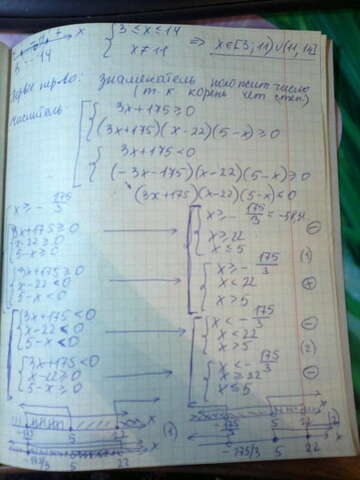 3 14 x { 3 ≤ x ≤ 14
x ≠ 11 => x∈[3; 11)∪(11, 14]
знаменатель положит. число
(т.к корень чет. степ.)
числитель:
{ 3x+175 ≥ 0
(3x+175)(x-22)(5-x) ≥ 0
{ 3x+175 < 0
(-3x-175)(x-22)(5-x) ≥ 0
(3x+175)(x-22)(5-x) < 0
x ≥ -175/3
{ 3x+175 ≥ 0
x-22 ≥ 0
5-x ≥ 0
{ x ≥ -175/3
x ≥ 22
x ≤ 5
(1)
{ 3x+175 ≥ 0
x-22 < 0
5-x < 0
{ x ≥ -175/3
x < 22
x > 5
{ 3x+175 < 0
x-22 < 0
5-x < 0
{ x < -175/3
x < 22
x > 5
(2)
{ 3x+175 < 0
x-22 ≥ 0
5-x ≥ 0
{ x < -175/3
x ≥ 22
x ≤ 5
5 22 x
-175/3 5 22 x
-175/3 5 22 x